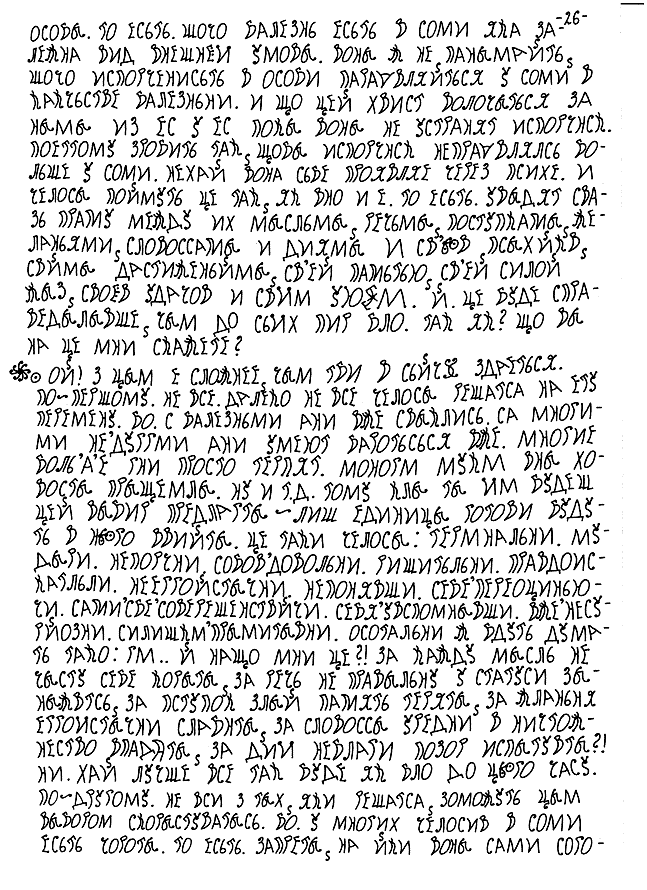 -26-
ОСОБЫ. ТО ЕСЬТЬ. ШОГО БАЛЕЗНЬ ЕСЬТЬ В СОМИ ЯКА ЗА-
ЛЕЖНА ВИД ВНЕШНЕЙ УМОВЫ. ВОНЫ Ж НЕ ПАНЫМАЙТЬ,
ШОГО ИСПОРЧЕНИСЬТЬ В ОСОБИ ПАРАВЛЯЙТЬСЯ У СОМИ В
КАЧЬСТВЕ БАЛЕЗНЬНИ. И ЩО ЦЕЙ ХВИСТ ВОЛОЧЫТЬСЯ ЗА
НЫМЫ ИЗ ЕС У ЕС ПОКЫ ВОНЫ НЕ УСТРАНЯТ ИСПОРЧНСЯ.
ПОЕТТОМУ ЗРОБИТЬ ТАК, ЩОБЫ ИСПОРЧНСЯ НЕ ПРАВЛЯЛСЬ БО-
ЛЬШЕ У СОМИ. НЕХАЙ ВОНА СЬБЕ ПРОЯВЛЯЕ ЧЕРЕЗ ПСИХЕ. И
ЧЕЛОСЫ ПОЙМУТЬ ЦЕ ТАК, ЯК ВНО И Е. ТО ЕСЬТЬ. УВАДЯТ СВЯ-
ЗЬ ПРАМУ МЕЖДУ ИХ МЫСЛЬМЫ, РЕЧЬМЫ, ПОСТУПКАМЫ, ЖЕ-
ЛАНЬЯМИ, СЛОВОССАМЫ И ДИЯМЫ И ПСЫХИКВ,
СВЙМЫ ДАСТИЖЕНЬЙМЫ, СВ'ЕЙ ПАМЬТЬЮ, СВ'ЕЙ СИЛОЙ
СВОЕВ УДАЧОВ И СВИМ Й. ЦЕ БУДЕ СПРА-
ВЕДЫЛЫВШЕ, ЧЫМ ДО СЬИХ ПИР БЛО. ТАК ЯК? ЩО ВЫ
НА ЦЕ МНИ СКАЖЕТЕ?
ОЙ! З ЦЫМ Е СЛОЖНЕЕ, ЧЫМ ТВИ В ЗДАЕТЬСЯ.
ПО-ПЕРШОМУ. НЕ ВСЕ. ДАЛЕКО НЕ ВСЕ ЧЕЛОСЫ РЕШАТСА НА ЕТУ
ПЕРЕМЕНУ. БО. С БАЛЕЗНЬМИ АНИ ВЖЕ СВКЛИСЬ. СА МНОГИ-
МИ НЕ'ДУГГМИ АНИ УМЕЮТ БАРОТЬСЬСЯ ВЖЕ. МНОГИЕ
БОЛЬ'А'Е ГНИ ПРОСТО ТЕРПЯТ. МОНОГМ МУКМ ВНА ХО-
ВОСТА ПРАЩЕМЛА. НУ И Т.Д. ТОМУ КЛЫ ТЫ ИМ БУДЕШ
ЦЕЙ ВЫБИР ПРЕДЛАГТЫ - ЛИШ ЕДИНИЦЫ ГОТОВИ БУДУ-
ТЬ В НЬОГО ВВИЙТЫ. ЦЕ ТАКИ ЧЕЛОСЫ: ТЕРМНАЛЬНИ. МУ-
ДАГИ. НЕПОРЧНИ, СОБОВ'ДОВОЛЬНИ. РИШИТЬЛЬНИ. ПРАВДОИС-
КАТЛЬЛИ. НЕЕГГОЙСТЫЧНИ. НЕПОНЯВШИ. СЕБЕ'ПЕРЕОЦИНЬЮ-
ЧИ. САМИ'СВЕ'СОВЕРЕШЕНСТВЙЧИ. СЕБЯ'УВСПОМНЫВШИ. ВЖЕ'НЕСУ-
РЙОЗНИ. СИЛИШКМ'ПРАМИТЫВНИ. ОСОТАЛЬНИ Ж ВДУТЬ ДУМА-
ТЬ ТАКО: ГМ.. Й НАЩО МНИ ЦЕ?! ЗА КАЖДУ МЫСЛЬ НЕ
ЧЫСТУ СЕБЕ КОРЯТЫ, ЗА РЕЧЬ НЕ ПРАВЫЛЬНУ У СТАТУСИ ЗА-
НЫЖВТСЬ, ЗА ПСТУПОК ЗЛАЙ ПАМЯТЬ ТЕРЯТЫ, ЗА ЖЛАНЬНЯ
ЕГГОИСТЫЧНИ СЛАБНТЫ, ЗА СЛОВОССЫ УРЕДНИ В НИЧТОЖ-
НЕСТВО ВПАДАТЫ, ЗА ДИИ НЕВЛАГИ ПОЗОР ИСПЫТУВТЫ?!
НИ. ХАЙ ЛУЧШЕ ВСЕ ТАК БУДЕ ЯК БЛО ДО ЦЬОГО ЧАСУ.
ПО-ДРУГОМУ. НЕ ВСИ З ТЫХ, ЯКИ РЕШАТСА, ЗОМОЖУТЬ ЦЫМ
ВЫБОРОМ СКОРЫСТУВАТЫСЬ. БО. У МНОГИХ ЧЕЛОСИВ В СОМИ
ЕСЬТЬ ЧОРОТЫ. ТО ЕСЬТЬ. ЗАПРЕТЫ, НА ЙКИ ВОНЫ САМИ СОГО-